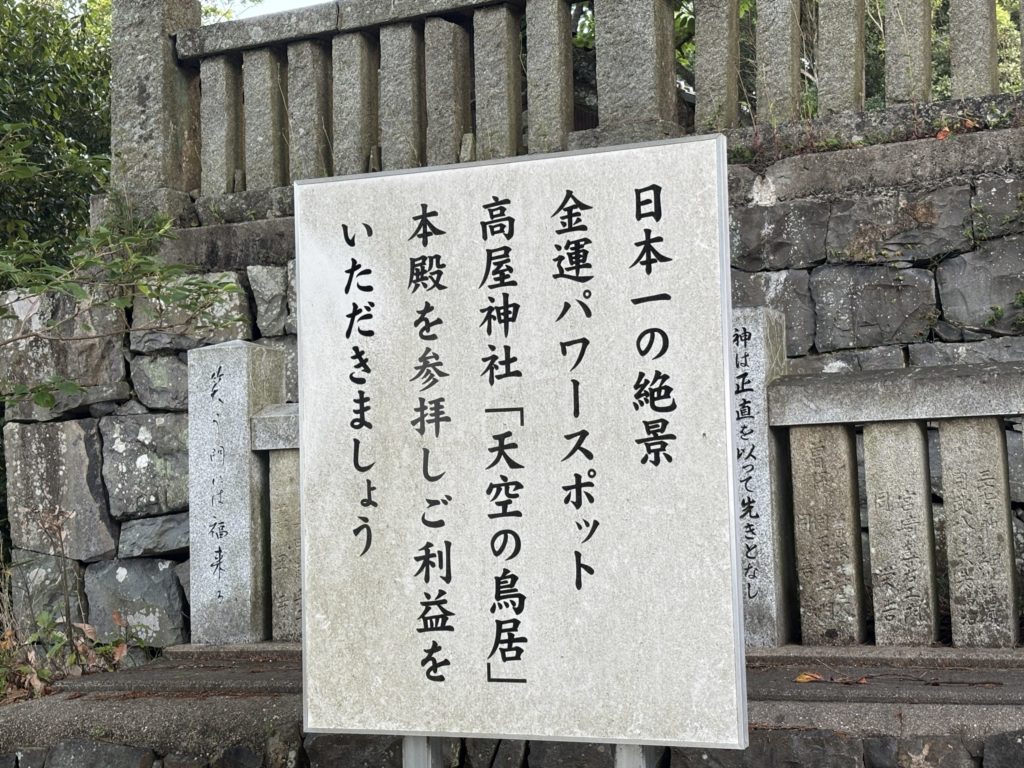 日本一の絶景
金運パワースポット
高屋神社「天空の鳥居」
本殿を参拝しご利益を
いただきましょう
神は正直を以って先きとなし
笑う門には福来る